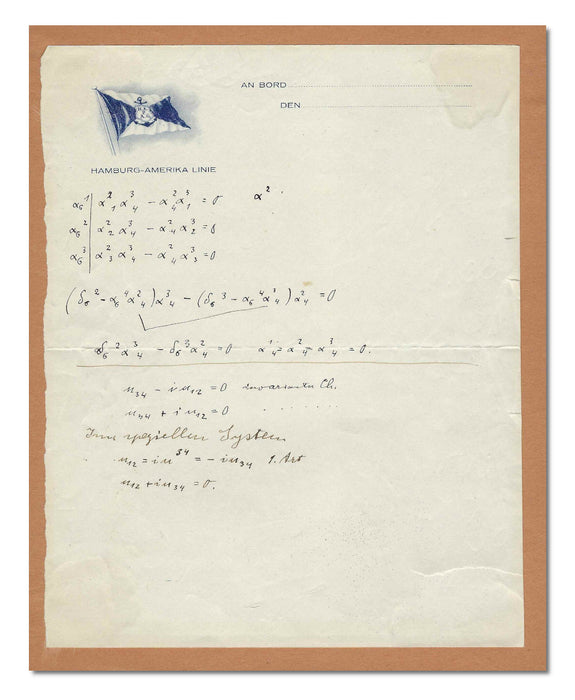 AN BORD
DEN
HAMBURG-AMERIKA LINIE
α₆¹ | α₁² α₄³ − α₄² α₁³ = 0 α²
α₆² | α₂² α₄³ − α₄² α₂³ = 0
α₆³ | α₃² α₄³ − α₄² α₃³ = 0
(δ₆² − α₆⁴ α₄²) α₄³ − (δ₆³ − α₆⁴ α₄³) α₄² = 0
δ₆² α₄³ − δ₆³ α₄² = 0 α₄¹ = α₄² = α₄³ = 0.
u₃₄ − i u₁₂ = 0 invariante Ch.
u₃₄ + i u₁₂ = 0 . . . . . .
Im speziellen System
u₁₂ = i u³⁴ = − i u₃₄ 1. Art
u₁₂ + i u₃₄ = 0.